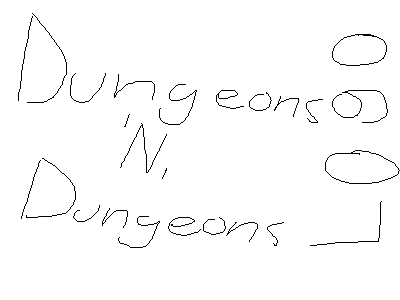 Dungeons
'N,
Dungeons
LOgO